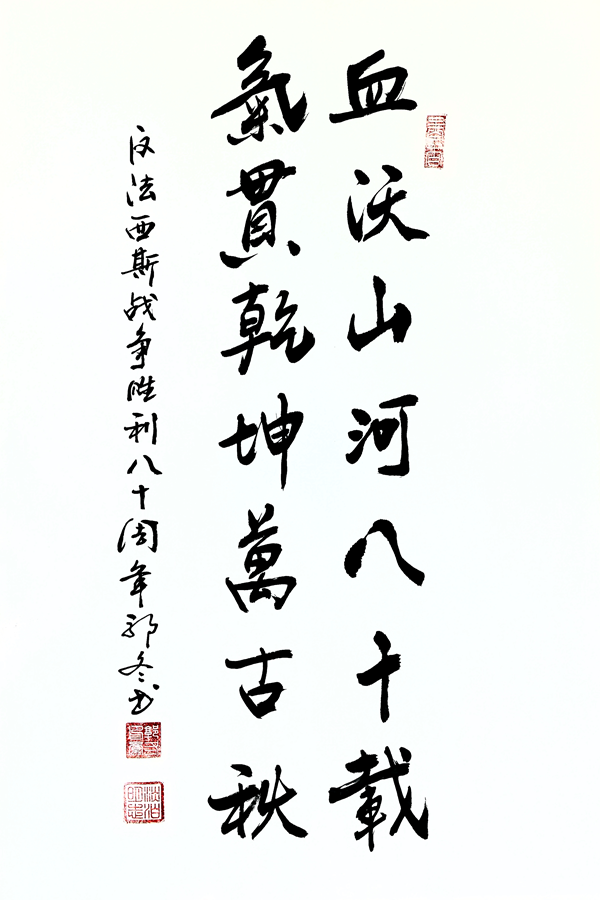 血沃山河八十載
氣貫乾坤萬古秋
反法西斯战争胜利八十周年郭冬书